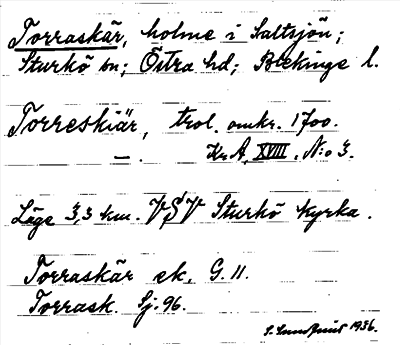 Torraskär, holme i Saltsjön;
Sturkö sn; Östra hd; Blekinge l.
Torreskiär, trol. omkr. 1700.
— . Kr A, XVIII. N:o 3.
Läge 3,3 km. VSV Sturkö kyrka.
Torraskär ek. G. 11.
Torrask. Sj. 96.
1936.